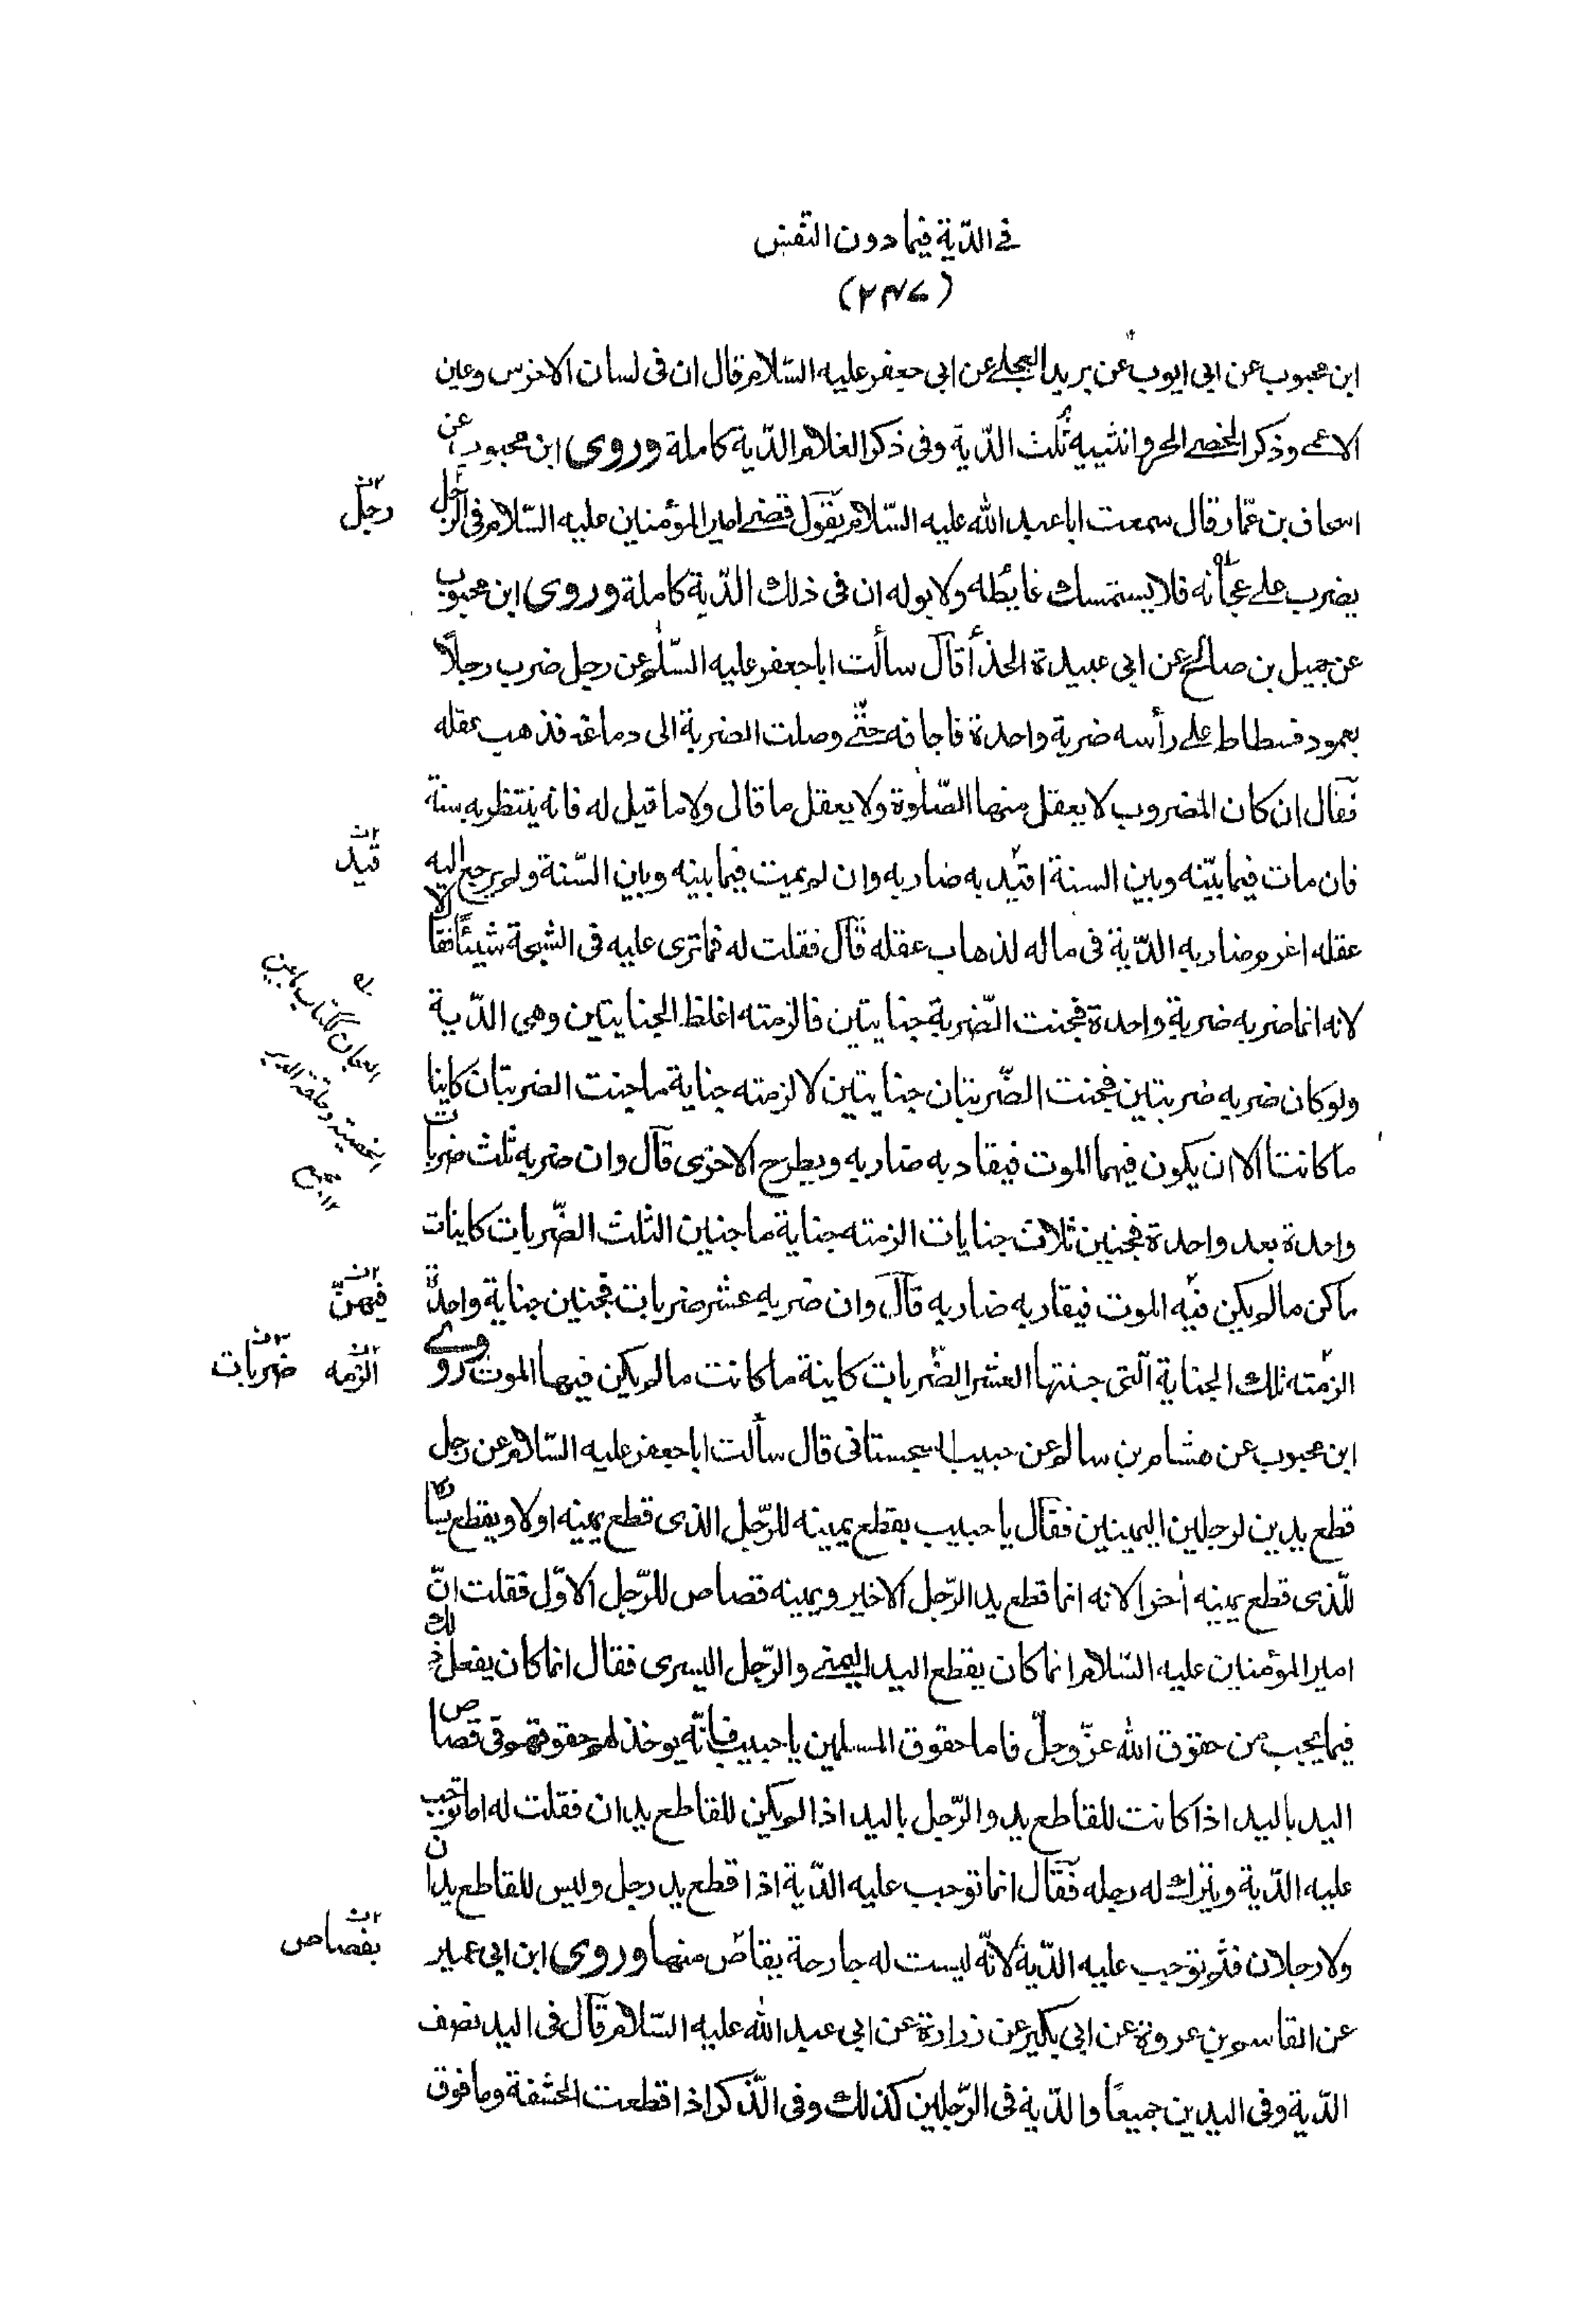 في الدّية فيما دون النّفس
(٢٣٧)
ابن محبوب عن ابي ايوب عن بريد العجلي عن ابي جعفر عليه السّلام قال ان فى لسان الاخرس وعين
الاعمى وذكر الخصي الحر وانثييه ثلث الدّية وفى ذكر الغلام الدّية كاملة وروى ابن محبوب عن
اسحاق بن عمّار قال سمعت ابا عبد الله عليه السّلام يقول قضى امير المؤمنين عليه السّلام فى الرّجل
رجل
يضرب على عجانه فلا يستمسك غايطه ولا بوله ان فى ذلك الدّية كاملة وروى ابن محبوب
عن جميل بن صالح عن ابى عبيدة الحذأ قال سألت ابا جعفر عليه السّلم عن رجل ضرب رجلاً
بعمود فسطاط على رأسه ضربة واحدة فاجافه حتّى وصلت الضربة الى دماغه فذهب عقله
فقال ان كان المضروب لا يعقل منها الصّلوة ولا يعقل ما قال ولا ما قيل له فانه ينتظر به سنة
فان مات فيما بينه وبين السنة اقيد به ضاربه وان لم يمت فيما بينه وبين السّنة ولم يرجع اليه
قيد
عقله اغرم ضاربه الدّية فى ماله لذهاب عقله قال فقلت له فما ترى عليه فى الشجة شيئاً فقا لا
لانه انما ضربه ضربة واحدة فجنت الضّربة جنايتين فالزمته اغلظ الجنايتين وهى الدّية
العجان ككتاب ما بين
الخصية وحلقة الدبر
مجمع
١٢
ولو كان ضربه ضربتين فجنت الضّربتان جنايتين لالزمته جناية ما جنت الضربتان كاينا
ما كانتا الا ان يكون فيهما الموت فيقاد به ضاربه ويطرح الاخرى قال وان ضربه ثلث ضربات
واحدة بعد واحدة فجنين ثلاث جنايات الزمته جناية ما جنين الثلث الضّربات كاينات
ما كن ما لم يكن فيه الموت فيقاد به ضاربه قال وان ضربه عشر ضربات فجنين جناية واحدة
فيهنّ
الزمته تلك الجناية الّتى جنتها العشر الضّربات كاينة ما كانت ما لم يكن فيها الموت روى
الزمه ضربات
ابن محبوب عن هشام بن سالم عن حبيب السجستانى قال سألت ابا جعفر عليه السّلام عن رجل
قطع يدين لرجلين اليمينين فقال يا حبيب يقطع يمينه للرّجل الذى قطع يمينه اولا ويقطع يساره
للّذى قطع يمينه أخرا لانه انما قطع يد الرّجل الاخير ويمينه قصاص للرّجل الاوّل فقلت انّ
امير المؤمنين عليه السّلام انما كان يقطع اليد اليمنى والرّجل اليسرى فقال انما كان يفعل ذلك
فيما يجب من حقوق الله عزّ وجلّ فاما حقوق المسلمين يا حبيب فانّه يوخذ لهم حقوقهم فى قصاص
اليد باليد اذا كانت للقاطع يد والرّجل باليد اذا لم يكن للقاطع يدان فقلت له اما توجب
عليه الدّية ويترك له رجله فقال انما توجب عليه الدّية اذا قطع يد رجل وليس للقاطع يدان
ولا رجلان فثم توجب عليه الدّية لانّه ليست له جارحة يقاصّ منها وروى ابن ابى عمير
بقصاص
عن القاسم بن عروة عن ابى بكير عن زرارة عن ابى عبد الله عليه السّلام قال فى اليد نصف
الدّية وفى اليدين جميعاً والدّية فى الرّجلين كذلك وفى الذّكر اذا قطعت الحشفة وما فوق